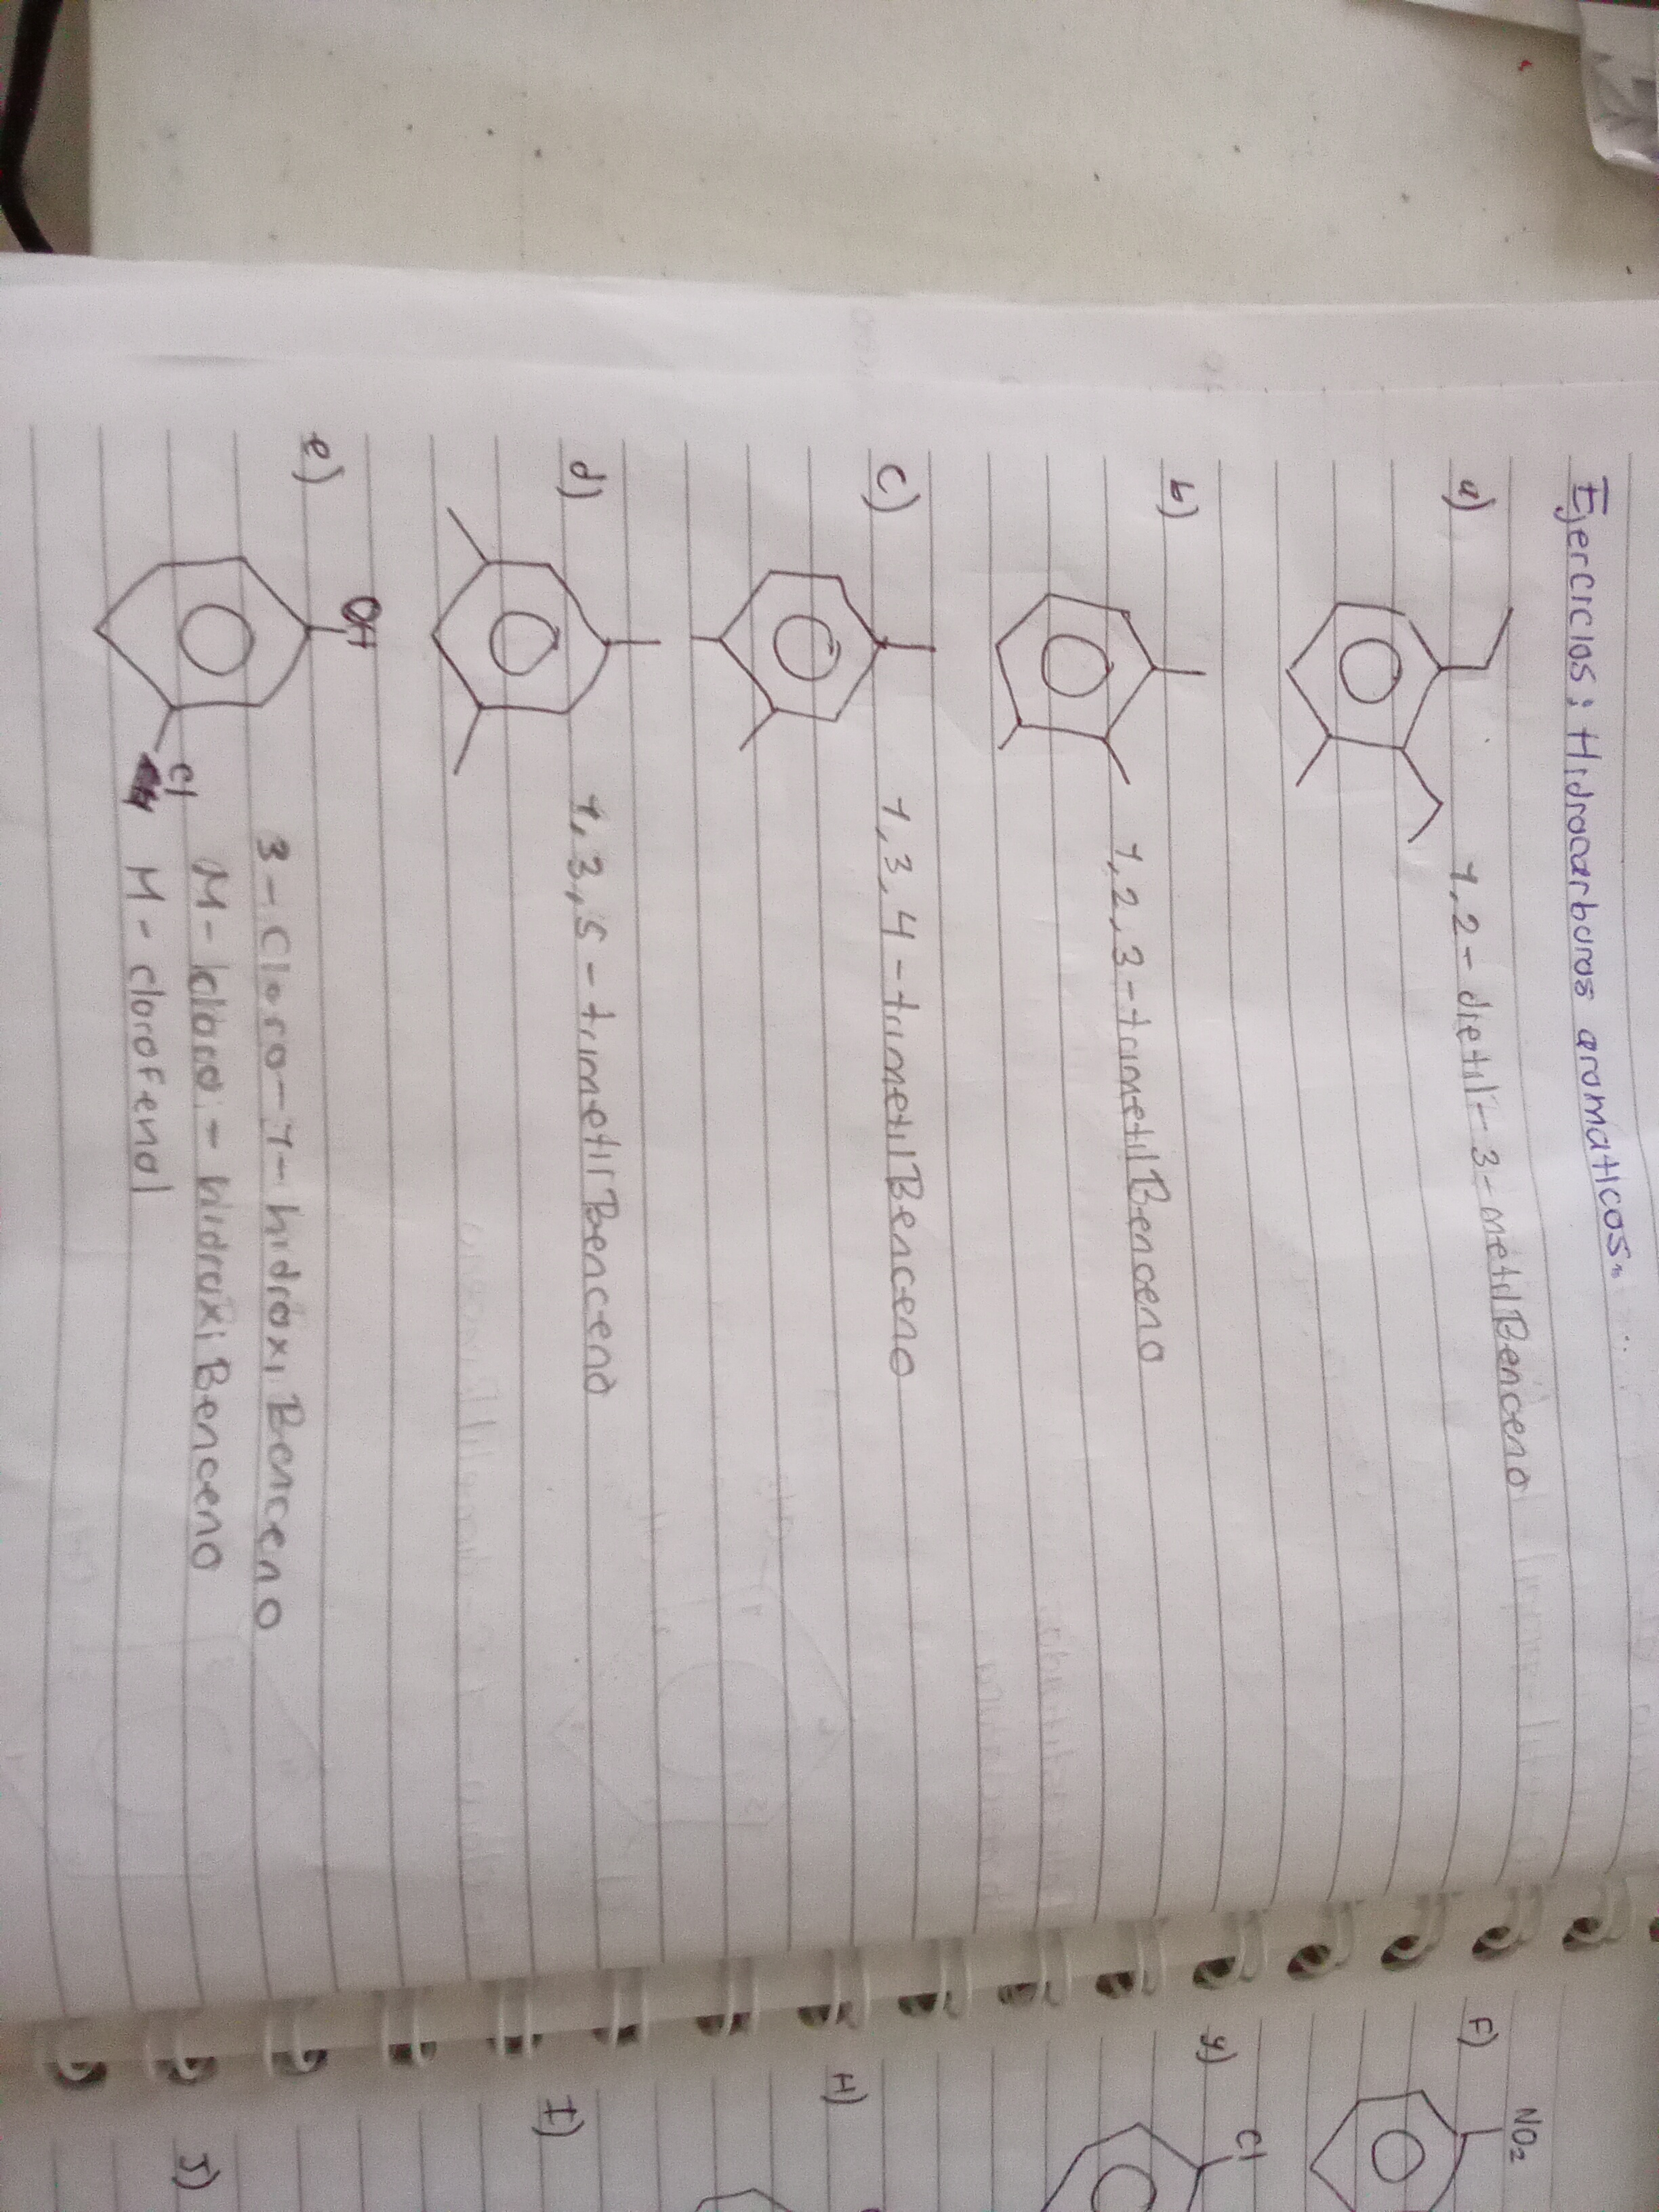 Ejercicios: Hidrocarburos aromaticos.
a)
1,2-dietil-3-metilBenceno
b)
1,2,3-trimetilBenceno
c)
1,3,4-trimetilBenceno
d)
1,3,5-trimetilBenceno
e)
OH
Cl
3-Cloro-1-hidroxiBenceno
M-cloro-hidroxiBenceno
M-clorofenol
F)
NO₂
g)
Cl
H)
I)
J)